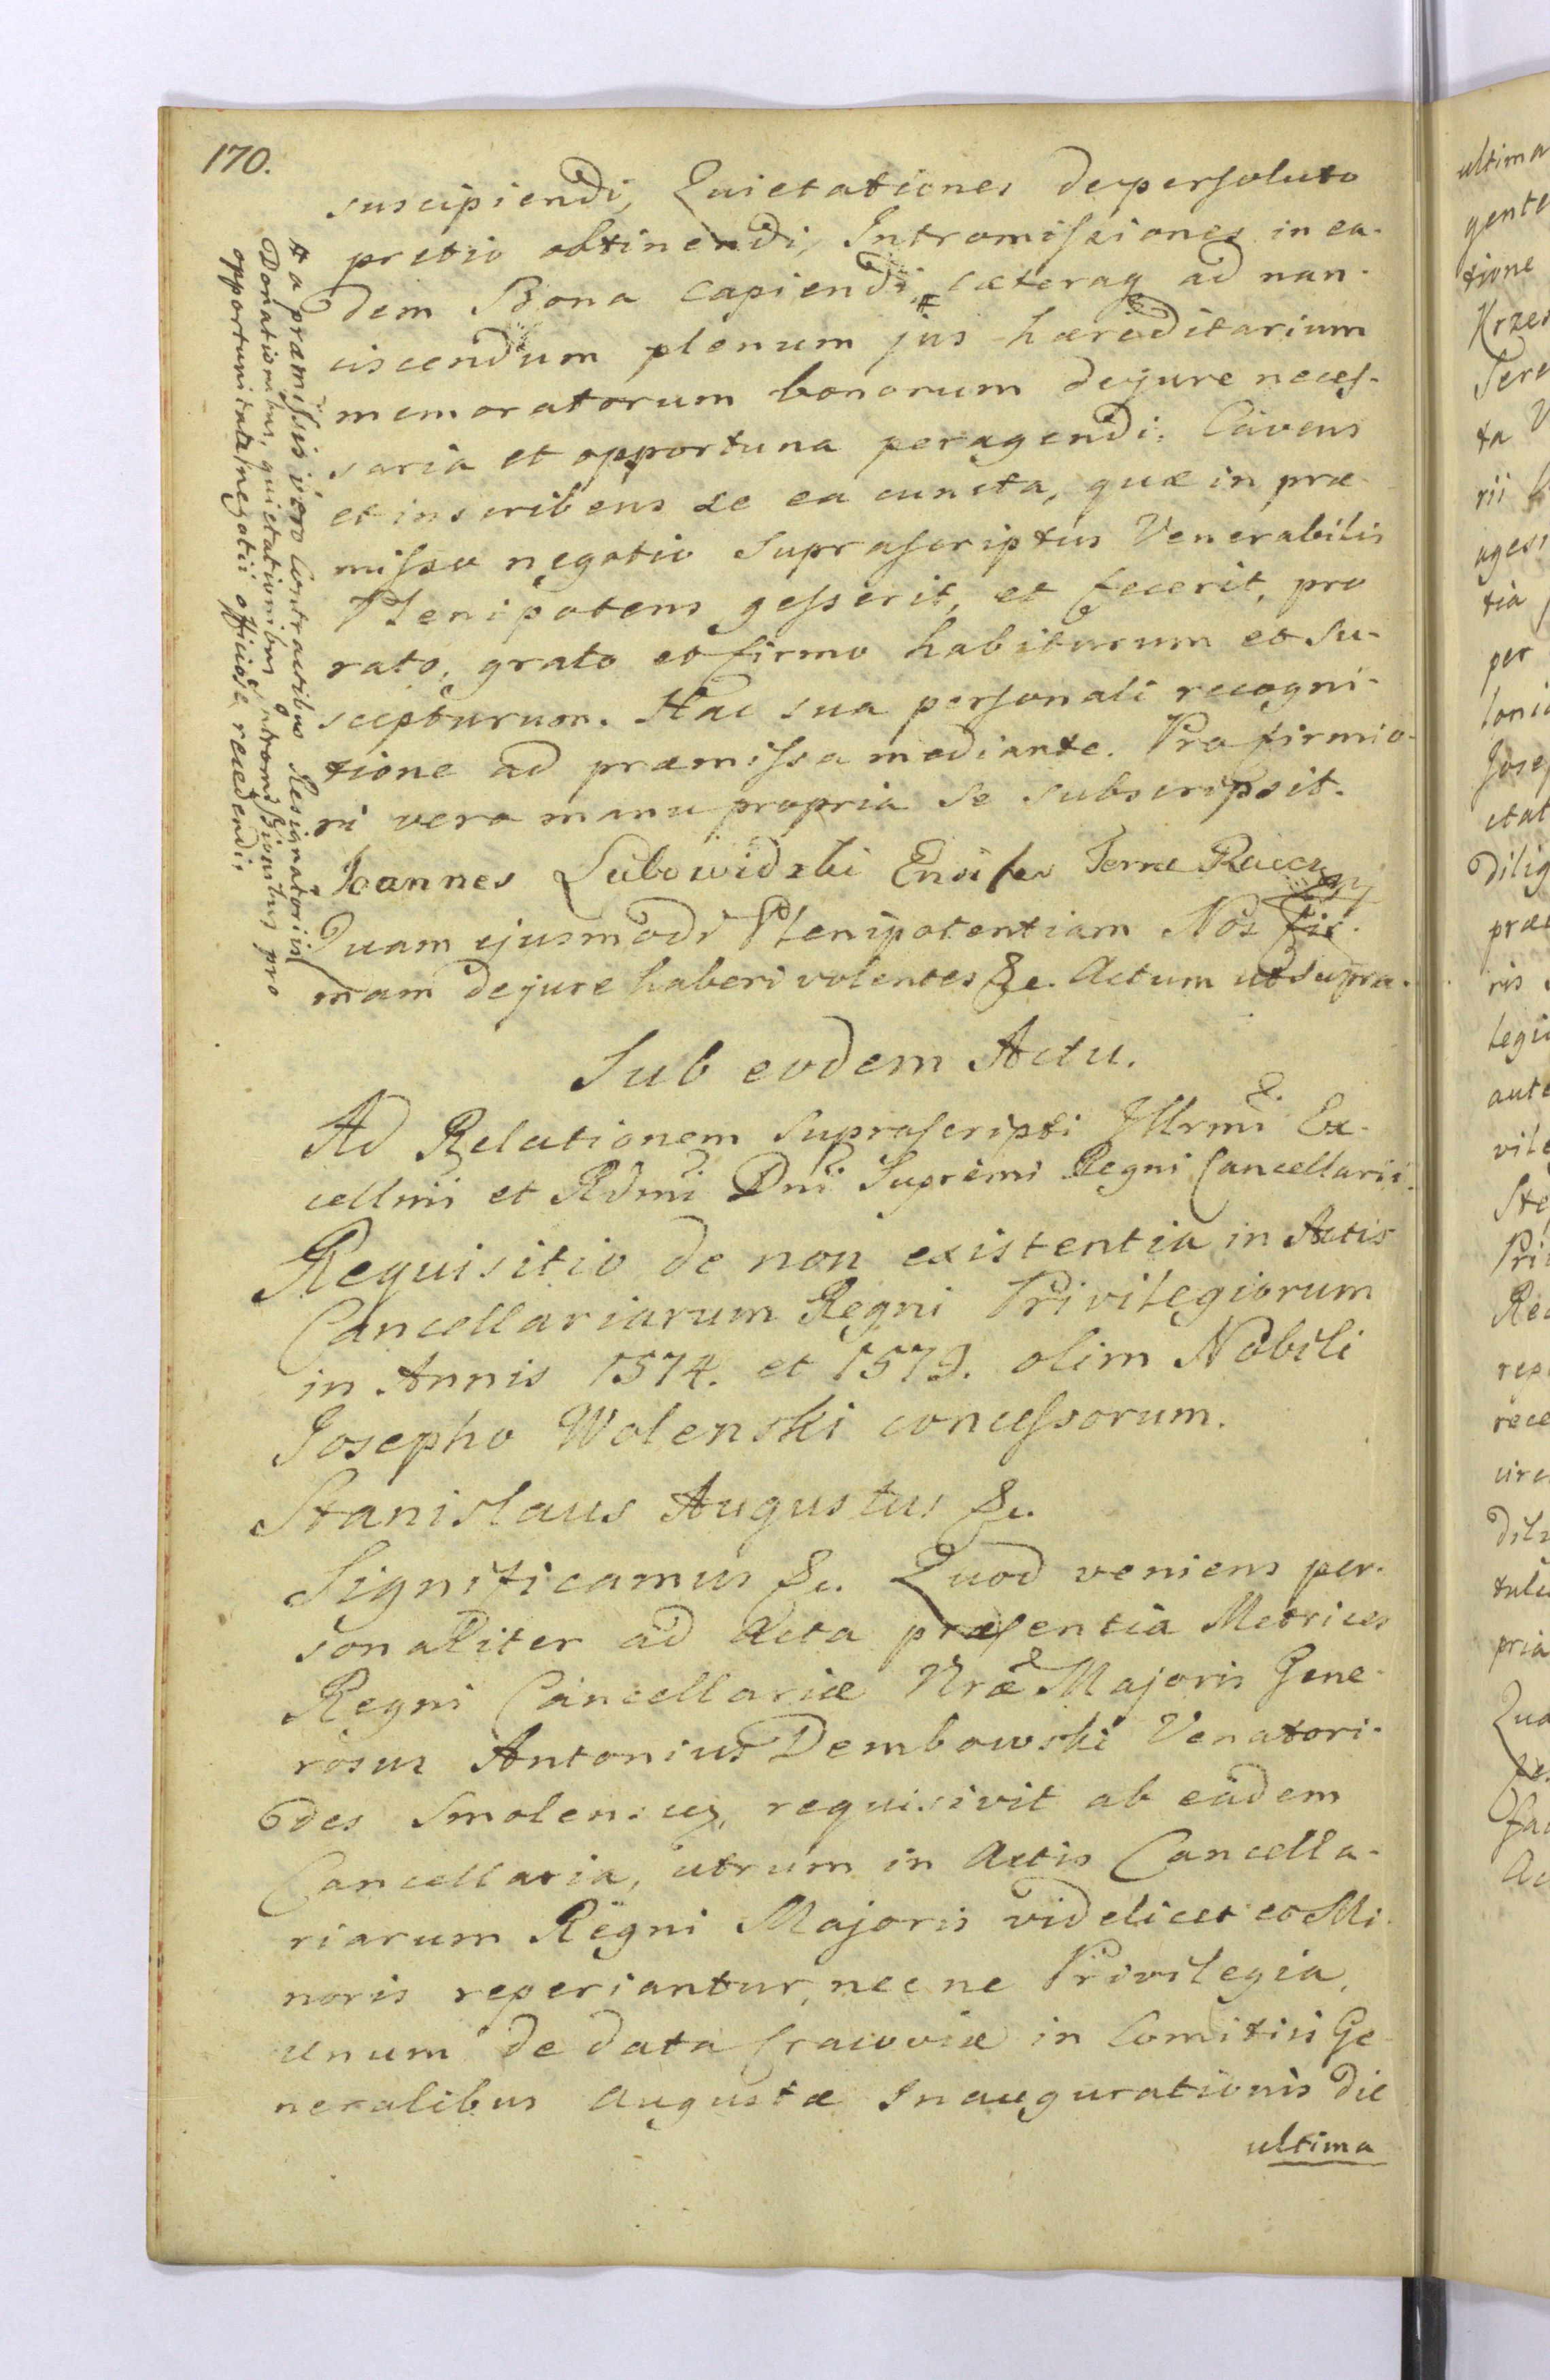 170.
suscipiendi, Quietationes de persoluto
pretio obtinendi, Intromissiones in ea-
dem Bona capiendi, # cæteraq ad nan-
ciscendum plenum jus hæreditarium
memoratorum bonorum de jure neces-
saria et opportuna peragendi. Cavens
et inscribens se ea cuncta, quæ in præ-
misso negotio suprascriptus Venerabilis
Plenipotens gesserit, et fecerit, pro
rato, grato et firmo habiturum et su-
scepturum. Hac sua personali recogni-
tione ad præmissa mediante. Pro firmio-
ri vero manu propria se subscripsit.
Joannes Lubowidzki Ensifer Terræ
Quam ejusmodi Plenipotentiam Nos fir-
mam de jure haberi volentes &c. Actum ut supra.
# a præmissis vero Contractibus Resignatoriis
Donationibus, quietationibus, intromissionibus pro
opportunitate negotii officiose recedendi,
Sub eodem Actu.
Ad Relationem suprascripti Illrmi Ex-
cellmi et Rdmi Dni Supremi Regni Cancellarii.
Requisitio de non existentia in Actis
Cancellariarum Regni Privilegiorum
in Annis 1574. et 1579. olim Nobili
Josepho Wolenski concessorum.
Stanislaus Augustus &c.
Significamus &c. Quod veniens per-
sonaliter ad Acta præsentia Metrices
Regni Cancellariæ Nræ Majoris Gene-
rosus Antonius Dembowski Venatori-
des Smolensc, requisivit ab eadem
Cancellaria, utrum in Actis Cancella-
riarum Regni Majoris videlicet et Mi-
noris reperiantur, nec ne Privilegia,
unum de data Cracoviæ in Comitiis Ge-
neralibus augustæ Inaugurationis die
ultima
ultima
gente
tione
Krzes
Terr
ta
rii
tia
per
Jose
etat
dilig
præ
ris
legi
vile
Ste
Pri
rep
rece
pria
Qua